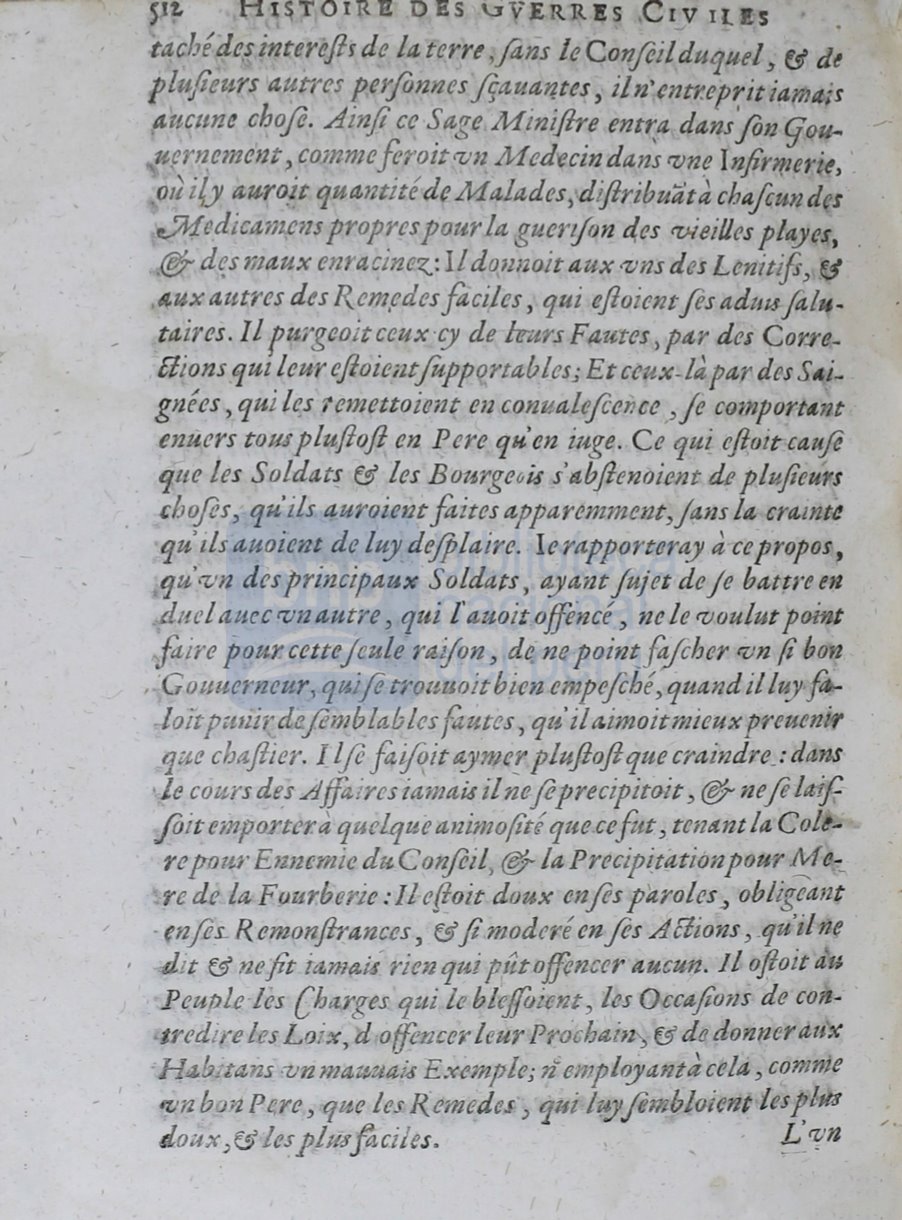 512 HISTOIRE DES GVERRES CIVILES
taché des interests de la terre, sans le Conseil duquel, & de
plusieurs autres personnes sçauantes, il n'entreprit iamais
aucune chose. Ainsi ce Sage Ministre entra dans son Gou-
uernement, comme feroit vn Medecin dans vne Infirmerie,
où il y auroit quantité de Malades, distribuãt à chascun des
Medicamens propres pour la guerison des vieilles playes,
& des maux enracinez: Il donnoit aux vns des Lenitifs, &
aux autres des Remedes faciles, qui estoient ses aduis salu-
taires. Il purgeoit ceux cy de leurs Fautes, par des Corre-
ctions qui leur estoient supportables; Et ceux-là par des Sai-
gnées, qui les remettoient en conualescence, se comportant
enuers tous plustost en Pere qu'en iuge. Ce qui estoit cause
que les Soldats & les Bourgeois s'abstenoient de plusieurs
choses, qu'ils auroient faites apparemment, sans la crainte
qu'ils auoient de luy desplaire. Ie rapporteray à ce propos,
qu'vn des principaux Soldats, ayant sujet de se battre en
duel auec vn autre, qui l'auoit offencé, ne le voulut point
faire pour cette seule raison, de ne point fascher vn si bon
Gouuerneur, qui se trouuoit bien empesché, quand il luy fa-
loit punir de semblables fautes, qu'il aimoit mieux preuenir
que chastier. Il se faisoit aymer plustost que craindre : dans
le cours des Affaires iamais il ne se precipitoit, & ne se lais-
soit emporter à quelque animosité que ce fut, tenant la Cole-
re pour Ennemie du Conseil, & la Precipitation pour Me-
re de la Fourberie : Il estoit doux en ses paroles, obligeant
en ses Remonstrances, & si moderé en ses Actions, qu'il ne
dit & ne fit iamais rien qui pût offencer aucun. Il ostoit au
Peuple les Charges qui le blessoient, les Occasions de con-
tredire les Loix, d'offencer leur Prochain, & de donner aux
Habitans vn mauuais Exemple; n'employant à cela, comme
vn bon Pere, que les Remedes, qui luy sembloient les plus
doux, & les plus faciles.
L'vn